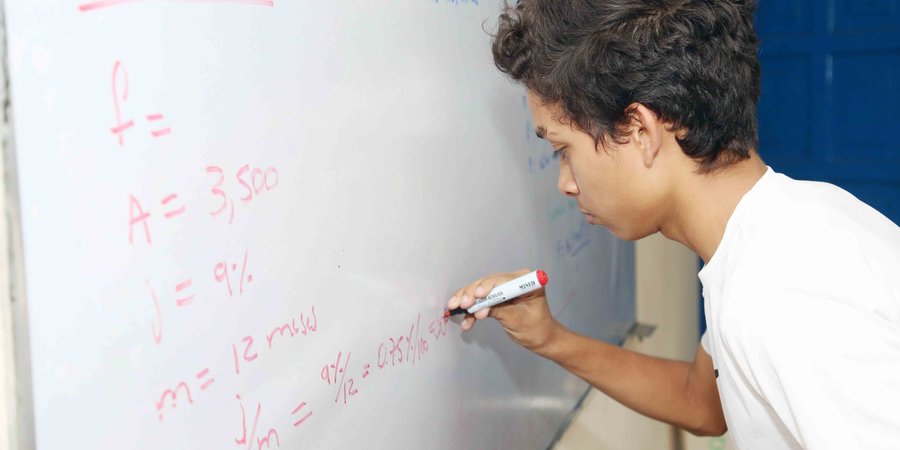 f =
A = 3,500
j = 9%
m = 12 meses
j/m = 9%/12 = 0.75%/100 =
MINED